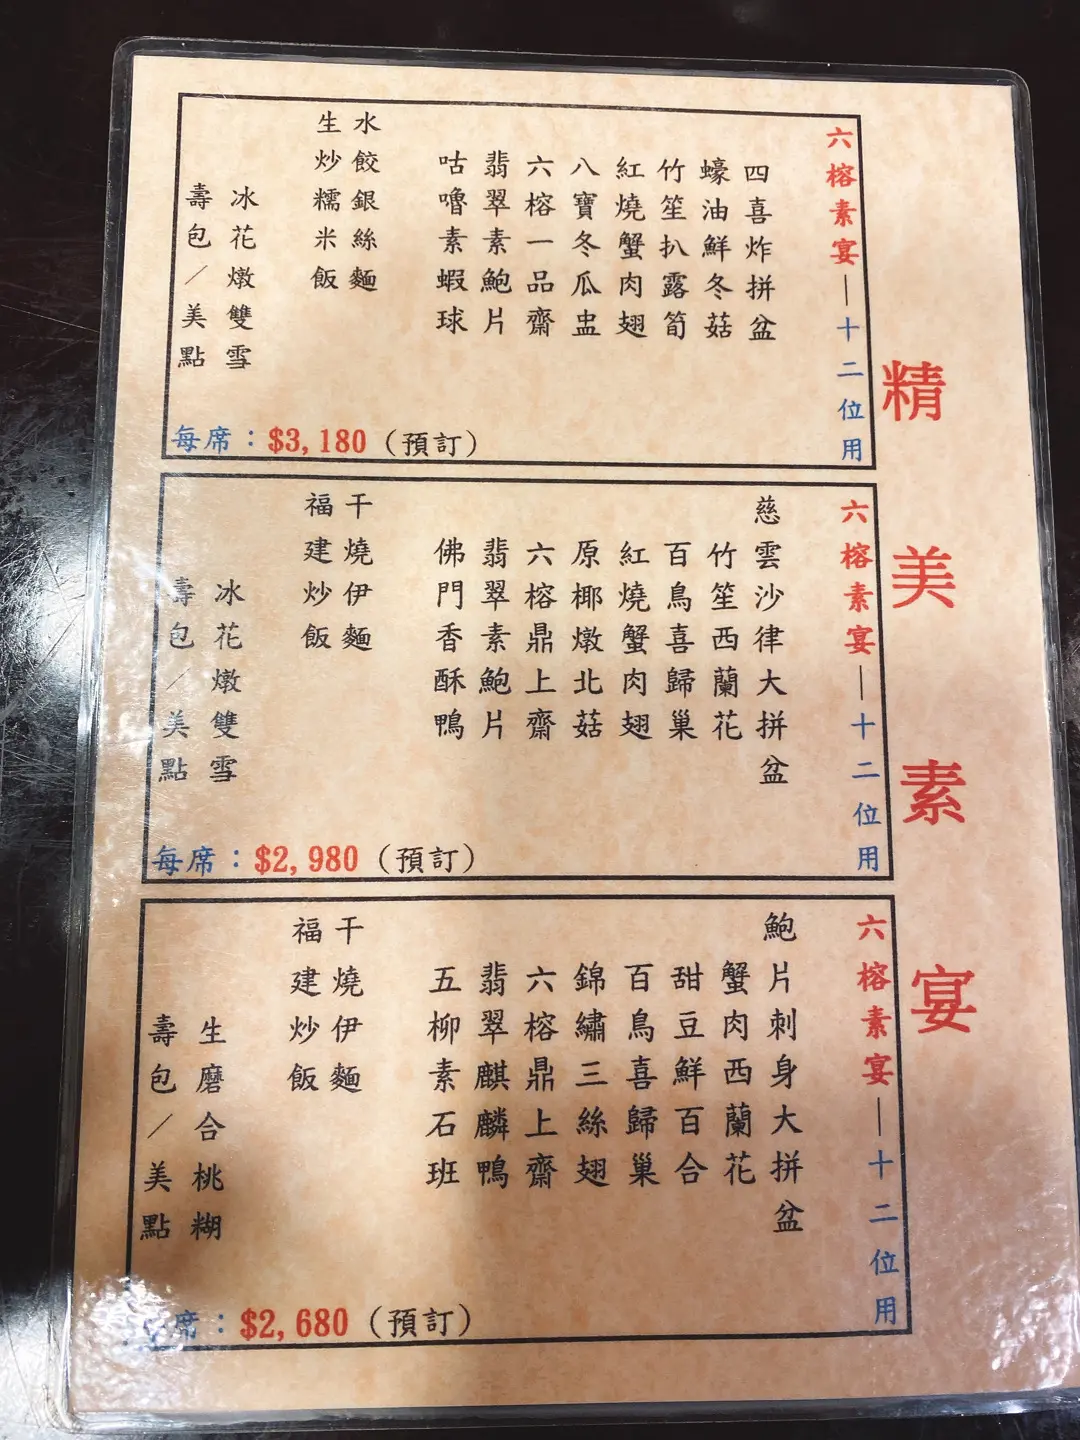 精美素宴
六榕素宴—十二位用
四喜炸拼盆
蠔油鮮冬菇
竹笙扒露筍
紅燒蟹肉翅
八寶冬瓜盅
六榕一品齋
翡翠素鮑片
咕嚕素蝦球
水餃銀絲麵
生炒糯米飯
冰花燉雙雪
壽包/美點
每席：$3,180（預訂）
六榕素宴—十二位用
慈雲沙律大拼盆
竹笙西蘭花
百鳥喜歸巢
紅燒蟹肉翅
原椰燉北菇
六榕鼎上齋
翡翠素鮑片
佛門香酥鴨
干燒伊麵
福建炒飯
冰花燉雙雪
壽包/美點
每席：$2,980（預訂）
六榕素宴—十二位用
鮑片刺身大拼盆
蟹肉西蘭花
甜豆鮮百合
百鳥喜歸巢
錦繡三絲翅
六榕鼎上齋
翡翠麒麟鴨
五柳素石班
干燒伊麵
福建炒飯
生磨合桃糊
壽包/美點
每席：$2,680（預訂）